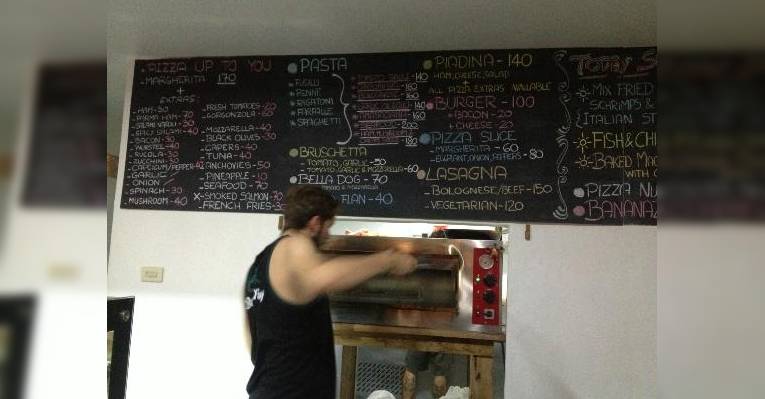 PIZZA UP TO YOU
MARGHERITA 170
+
EXTRAS:
HAM-50
PARMA HAM-70
SALAMI NAPOLI-50
SPICY SALAMI-40
BACON-50
WURSTEL-40
RUCOLA-30
ZUCCHINI-30
CAPSICUM/PEPPER-40
GARLIC
ONION
SPINACH-30
MUSHROOM-40
FRESH TOMATOES-20
GORGONZOLA-60
MOZZARELLA-40
BLACK OLIVES-30
CAPERS-40
TUNA-40
ANCHOVIES-50
PINEAPPLE-10
SEAFOOD-70
X-SMOKED SALMON-70
FRENCH FRIES-3
PASTA
FUSILLI
PENNE
RIGATONI
FARFALLE
SPAGHETTI
140
180
160
140
200
180
BRUSCHETTA
TOMATO, GARLIC-50
TOMATO, GARLIC & MOZZARELLA-60
BELLA DOG-70
FLAN-40
PIADINA-140
HAM, CHEESE, SALAD
ALL PIZZA EXTRAS AVAILABLE
BURGER-100
+BACON-20
+CHEESE-20
PIZZA SLICE
MARGHERITA-60
EGGPLANT, ONION, PEPPERS-80
LASAGNA
BOLOGNESE/BEEF-150
VEGETARIAN-120
TODAY S
MIX FRIED
SCHRIMPS &
ITALIAN ST
FISH & CH
BAKED MAC
WITH C
PIZZA NU
BANANA